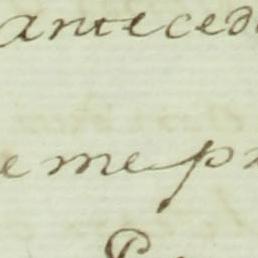 anteced
e me p